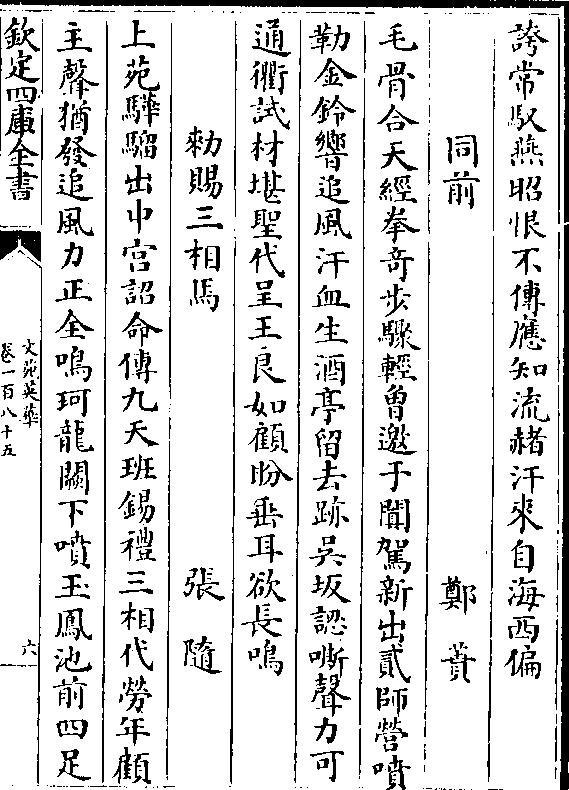 誇常馭燕昭恨不傳應知流赭汗來自海西偏
同前 鄭蕡
毛骨合天經拳奇步驟輕曽邀于闐駕新出貳師營噴
勒金鈴響追風汗血生酒亭留去跡吳坂認嘶聲力可
通衢試材堪聖代呈王良如顧盼垂耳欲長鳴
勑賜三相馬 張隨
上苑驊騮出中宮詔命傳九天班錫禮三相代勞年顧
主聲猶發追風力正全鳴珂龍闕下噴玉鳳池前四足
欽定四庫全書
文苑英華
卷一百八十五
六